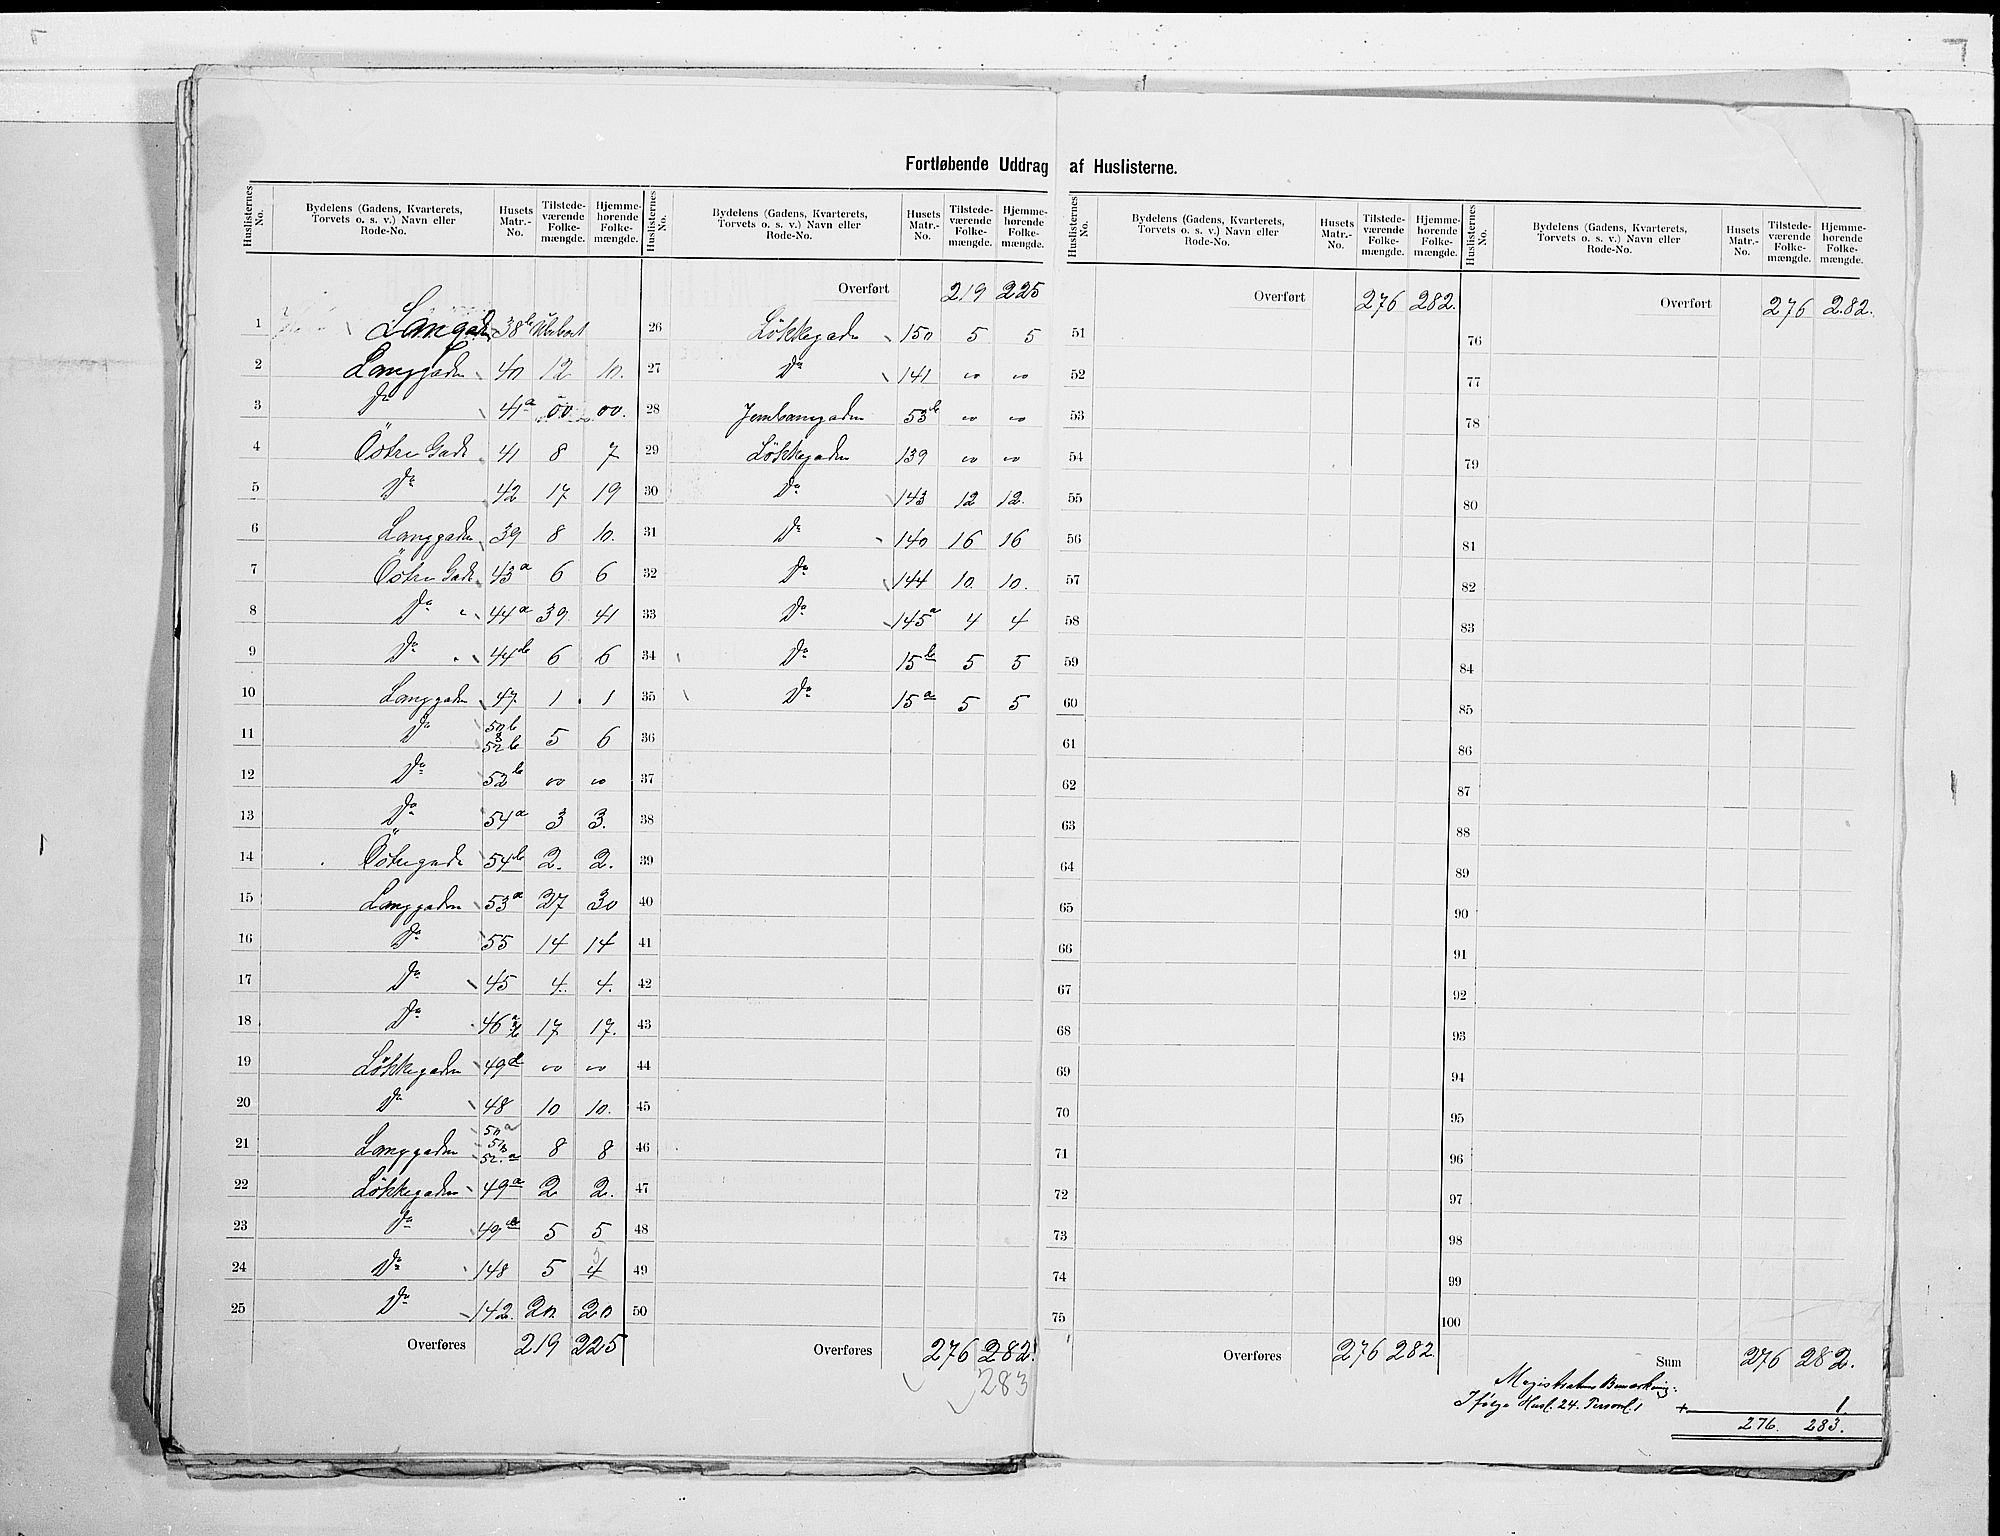 Fortløbende Uddrag af Huslisterne.
Huslisternes No. | Bydelens (Gadens, Kvarterets, Torvets o. s. v.) Navn eller Rode-No. | Husets Matr.-No. | Tilstedeværende Folkemængde. | Hjemmehørende Folkemængde.
1 Langgaden 38b Ubebot
2 Langgaden 40 12 10.
3 Do 41a 00 00.
4 Östre Gade 41 8 7
5 Do 42 17 19
6 Langgaden 39 8 10.
7 Östre Gade 43a 6 6
8 Do 44a 39 41
9 Do 44b 6 6
10 Langgaden 47 1 1
11 Do 50b & 52b 5 6
12 Do 52b 00 00
13 Do 54a 3 3.
14 Östregade 54b 2. 2.
15 Langgaden 53a 27 30
16 Do 55 14 14
17 Do 45 4. 4.
18 Do 46 a & b 17 17.
19 Lökkegaden 49d 00 00
20 Do 48 10 10.
21 Langgaden 50a 51 52.a 8 8
22 Lökkegaden 49a 2 2.
23 Do 49 5 5
24 Do 148 5 4
25 Do 142. 20. 20
Overføres 219 225
Huslisternes No. | Bydelens (Gadens, Kvarterets, Torvets o. s. v.) Navn eller Rode-No. | Husets Matr.-No. | Tilstedeværende Folkemængde. | Hjemmehørende Folkemængde.
Overført 219 225
26 Lökkegaden 150 5 5
27 Do 141 00 00
28 Jernbanegaden 53b 00 00
29 Lökkegaden 139 00 00
30 Do 143 12 12.
31 Do 140 16 16
32 Do 144 10. 10.
33 Do 145a 4 4
34 Do 15b 5 5
35 Do 15a 5 5
36
37
38
39
40
41
42
43
44
45
46
47
48
49
50
Overføres 276 282.
283
Huslisternes No. | Bydelens (Gadens, Kvarterets, Torvets o. s. v.) Navn eller Rode-No. | Husets Matr.-No. | Tilstedeværende Folkemængde. | Hjemmehørende Folkemængde.
Overført 276 282.
51
52
53
54
55
56
57
58
59
60
61
62
63
64
65
66
67
68
69
70
71
72
73
74
75
Overføres 276 282.
Huslisternes No. | Bydelens (Gadens, Kvarterets, Torvets o. s. v.) Navn eller Rode-No. | Husets Matr.-No. | Tilstedeværende Folkemængde. | Hjemmehørende Folkemængde.
Overført 276 282.
76
77
78
79
80
81
82
83
84
85
86
87
88
89
90
91
92
93
94
95
96
97
98
99
100
Sum 276 282.
Magistratens Bemærkning:
Ifølge Husl. 24. Personl. 1 + 1.
276. 283.